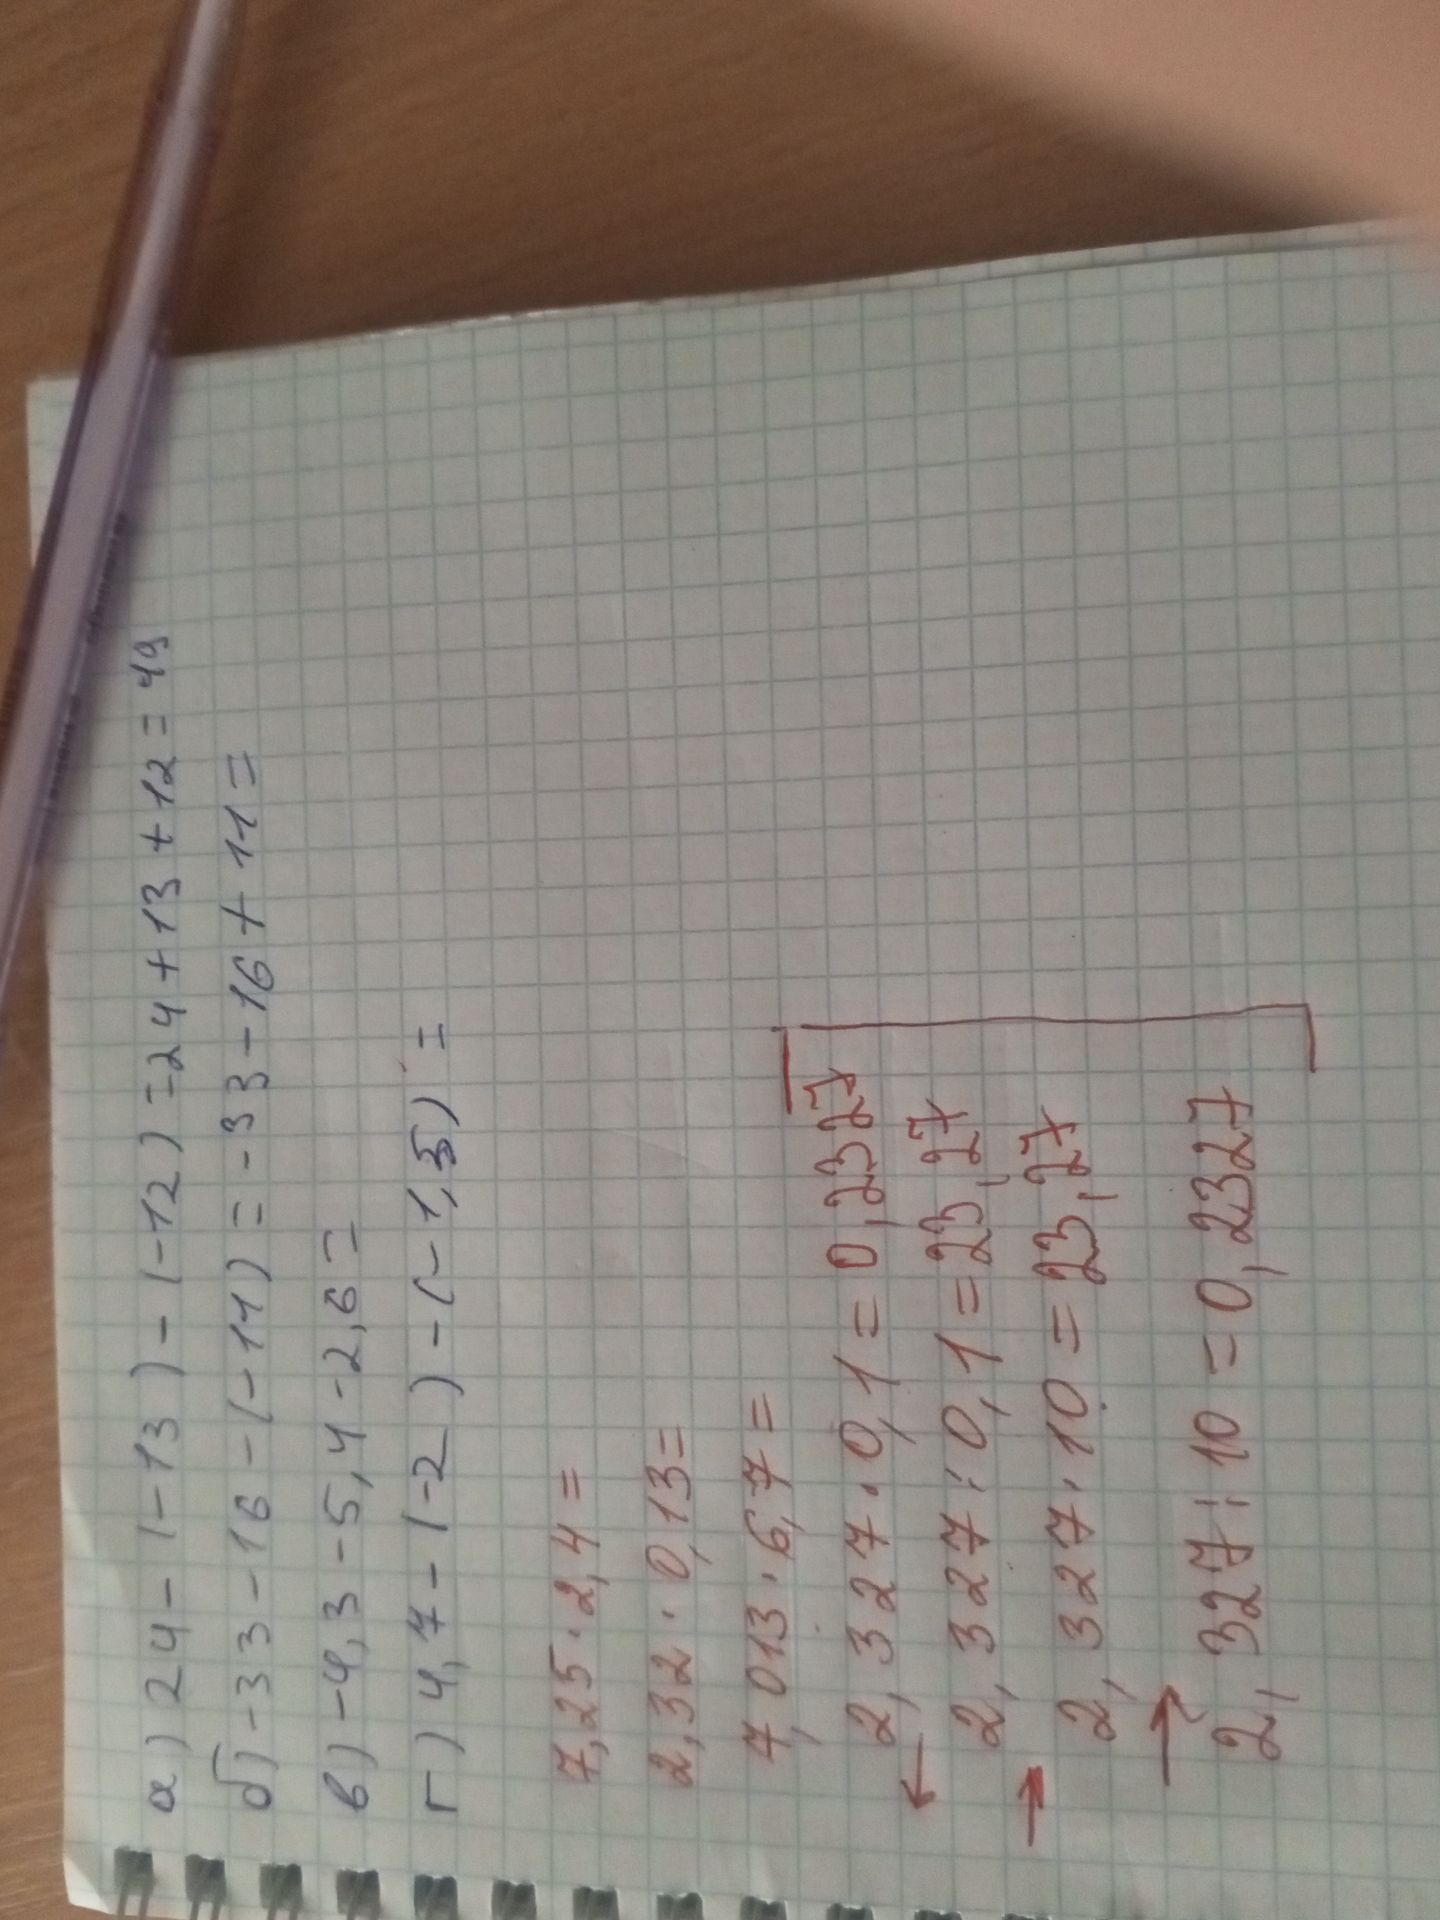 а) 24 - (-13) - (-12) = 24 + 13 + 12 = 49
б) -33 - 16 - (-11) = -33 - 16 + 11 =
в) -4,3 - 5,4 - 2,6 =
г) 4,7 - (-2) - (-1,5) =
7,25 · 2,4 =
2,32 · 0,13 =
7,013 · 6,7 =
2,327 · 0,1 = 0,2327
2,327 : 0,1 = 23,27
2,327 · 10 = 23,27
2,327 : 10 = 0,2327